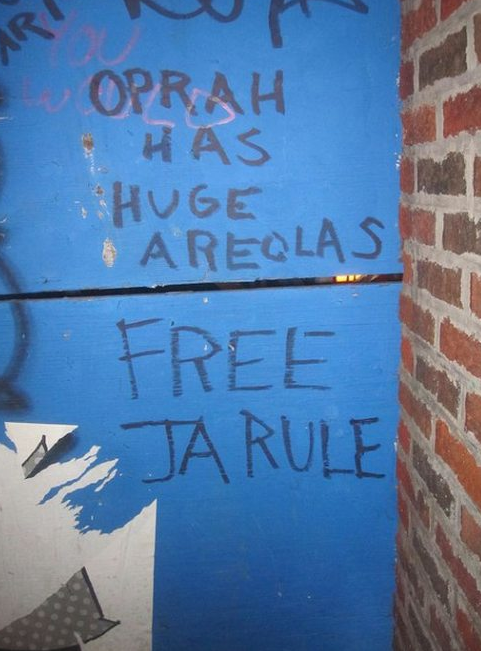 YOU
WOULD
OPRAH
HAS
HUGE
AREOLAS
FREE
JA RULE